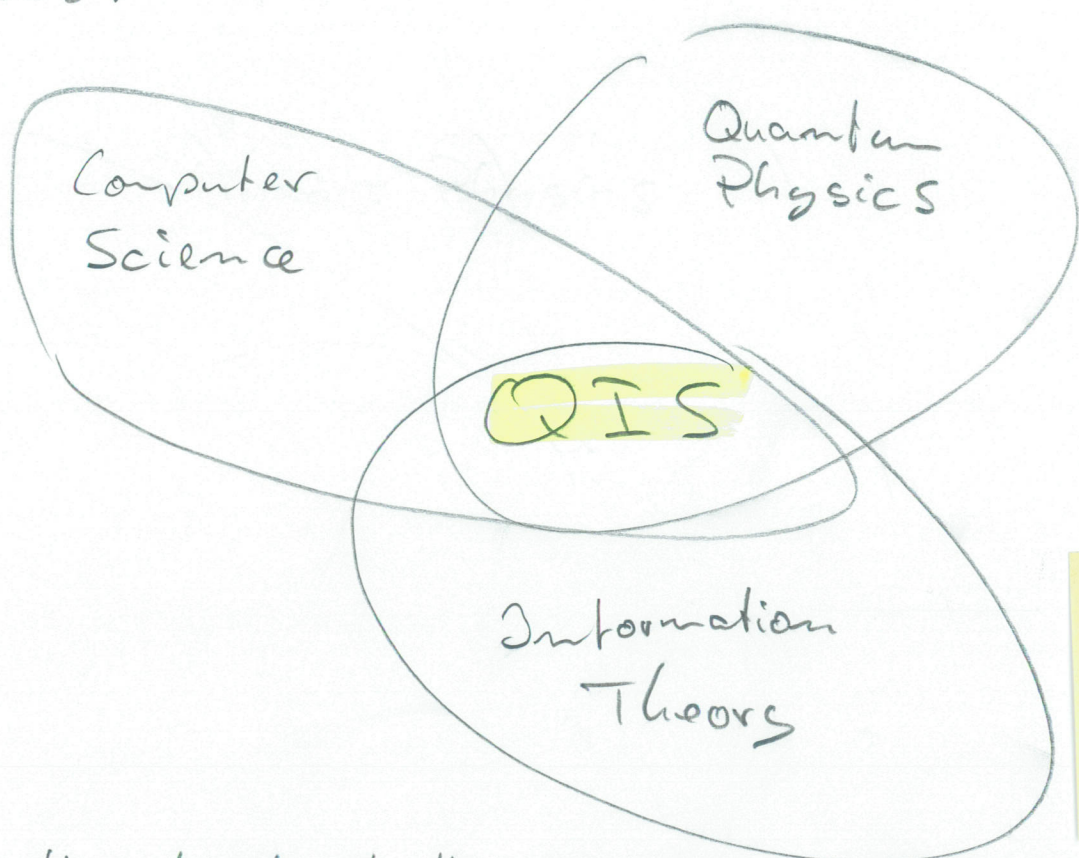 Computer
Science
Quantum
Physics
QIS
Information
Theory